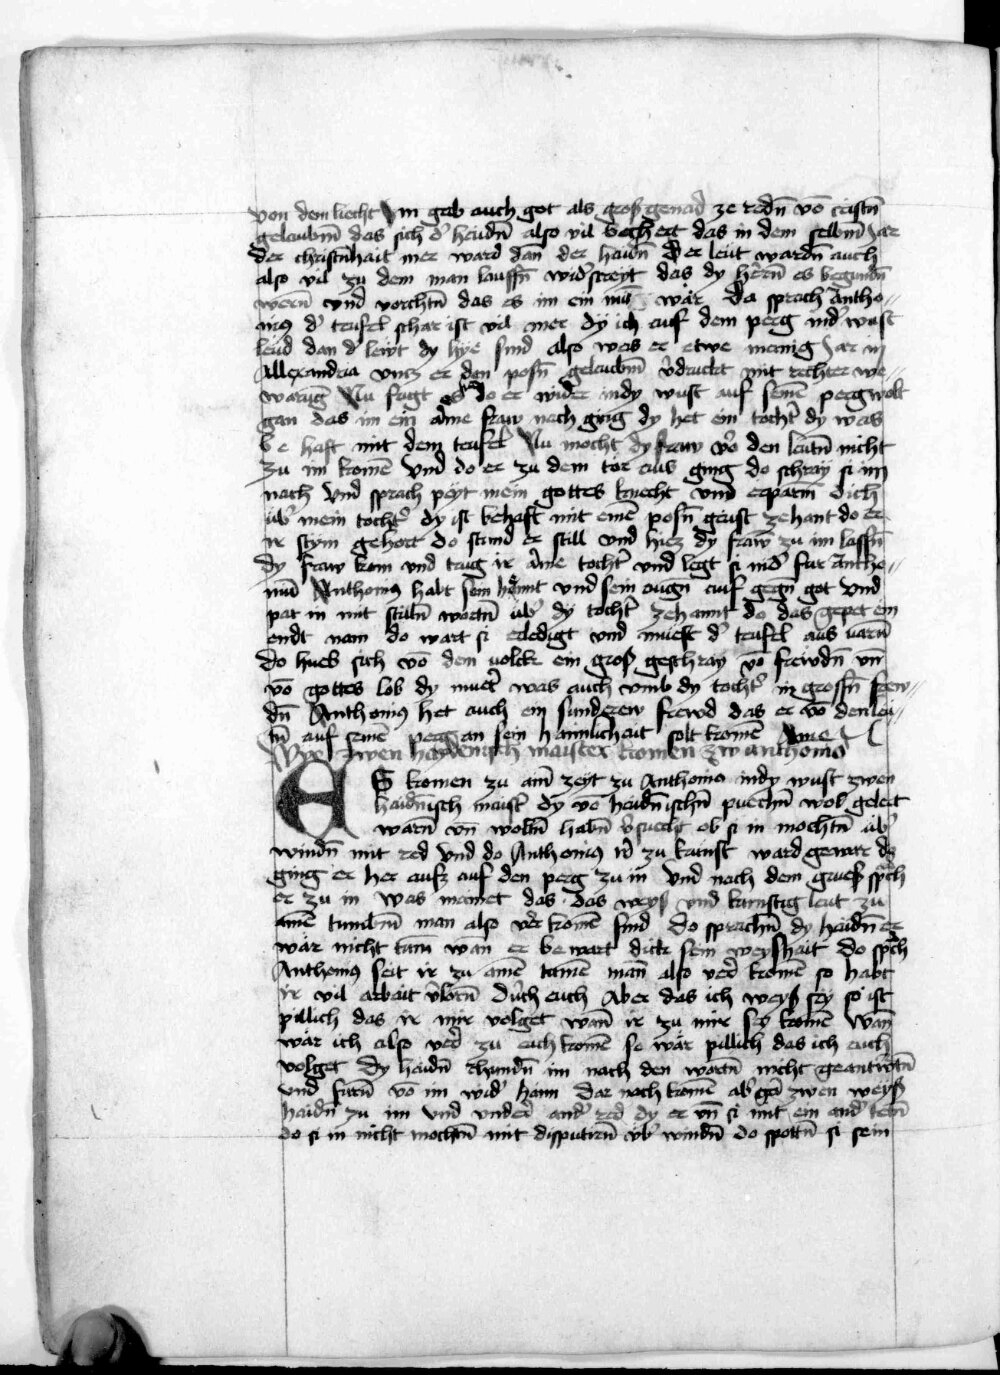 von dem liecht Im gab auch got als groß genad ze redn̄ vō cristn̄
gelaubm̄ das sich d' haidn̄ also vil bechert das in dem selbm̄ Jar
der christn̄hait mer ward dan̄ der haidn̄ Der leüt wardn̄ auch
also vil zu dem man lauffn̄ wid'streyt das dy hern̄ es begundn̄
wern̄ vnd vorchtn̄ das es im ein wär Da sprach Antho-
nius d' teufel schar ist vil mer dy ich auf dem perg ind' wust
leid dan d' lewt dy hye sind also was er etwe menig Jar in
Allexandria vncz er den posn̄ gelaubm̄ v̄druckt mit rechter we-
warūg Nu sagt es do er wider indy wust auf seinē perg wolt
gan das im ein arme fraw nach ging dy het ein tocht' dy was
be haft mit dem teufel Nu mocht dy fraw vō den leutn̄ nicht
zu im komē Vnd do er zu dem tor aus ging do schray si im
nach vnd sprach peyt mein gottes knecht vnd erparm̄ dich
üb' mein tocht' dy ist behaft mit einē posn̄ geist zehant do er
ir stym gehort do stund er still vnd hiez dy fraw zu im lassn̄
dy fraw kom vnd trug ir arme tocht' vnd legt si nid' fur Antho-
nium Anthonius habt sein hennt vnd sein augn̄ auf gegn̄ got vnd
pat in mit stilln̄ wortn̄ üb' dy tocht' zehannt do das gepet ein
endt nam do wart si erledigt vnd muest d' teufel aus uarn̄
do hueb sich vō dem uolck ein groß geschray vō frewdn̄ vn̄
vō gottes lob dy muet' was auch vmb dy tocht' in grossn̄ frew-
dn̄ Anthonius het auch ein sunderew frewd das er vō den leu-
tn̄ auf seinē perg an sein haimlichait solt komē Ame
Wye zwen haydenisch maister komen zw anthonio
ES komen zu ainē zeyt zu Anthonio indy wust zwen
haidn̄isch maist' dy vō haidn̄ischn̄ puechn̄ wol gelert
warn̄ vn̄ woltn̄ habn̄ v'suecht ob si in mochtn̄ üb'
windn̄ mit red Vnd do Anthonius ir' zu kunfft ward gewar do
ging er her aufz auf den perg zu in vnd nach dem grueß sprach
er zu in was mainet das das weyß vnd kunstig leut zu
ainē tumbm̄ man also v'r komē sind do sprachn̄ dy haidn̄ er
wär nicht tum̄ wan er bewart dick sein weyshait do sprach
Anthonius seit ir zu ainē tumē man̄ also verr komē so habt
ir vil arbait v'lorn̄ durch euch Aber das ich weyß sey so ist
pillich das ir mir volget wan̄ ir zu mir sey komē wan̄
wär ich also verr zu euch komē so wär pillich das ich euch
volget Dy haidn̄ chundn̄ im nach den wortn̄ nicht geantwortn̄
vnd furn̄ vō im wid' haim Dar nach komē ab' zwen weyß
haidn̄ zu im vnd vnder and' red dy er vn̄ si mit ein and'
do si in nicht mochtn̄ mit disputirn̄ üb' windn̄ do spottn̄ si sein